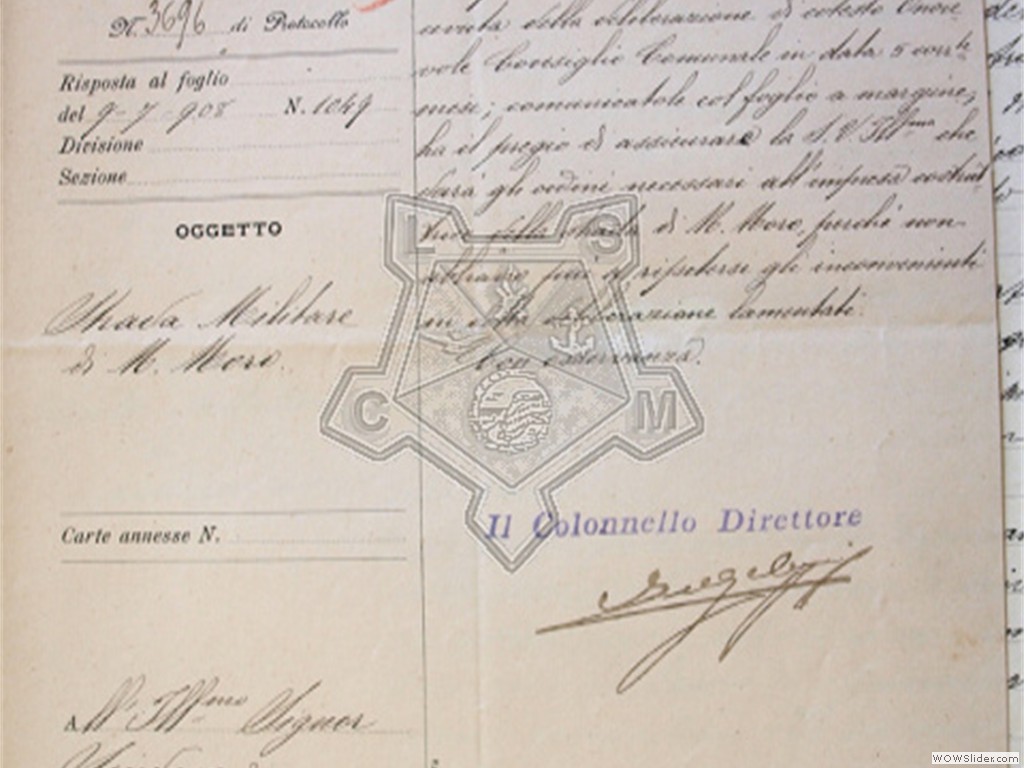 N. 3696 di Protocollo
Risposta al foglio
del 9-7-908 N. 1049
Divisione
Sezione
OGGETTO
Strada Militare
di M. Moro.
Carte annesse N.
A ll' Ill.mo Signor
della deliberazione di cotesto Onore
vole Consiglio Comunale in data 5 corr.te
mese; comunicatole col foglio a margine,
ha il pregio di assicurare la S. V. Ill.ma che
darà gli ordini necessari all'impresa costrut
trice della strada di M. Moro, perchè non
abbiano più a ripetersi gli inconvenienti
in detta deliberazione lamentati.
Con osservanza.
L S
C M
Il Colonnello Direttore
WOWSlider.com